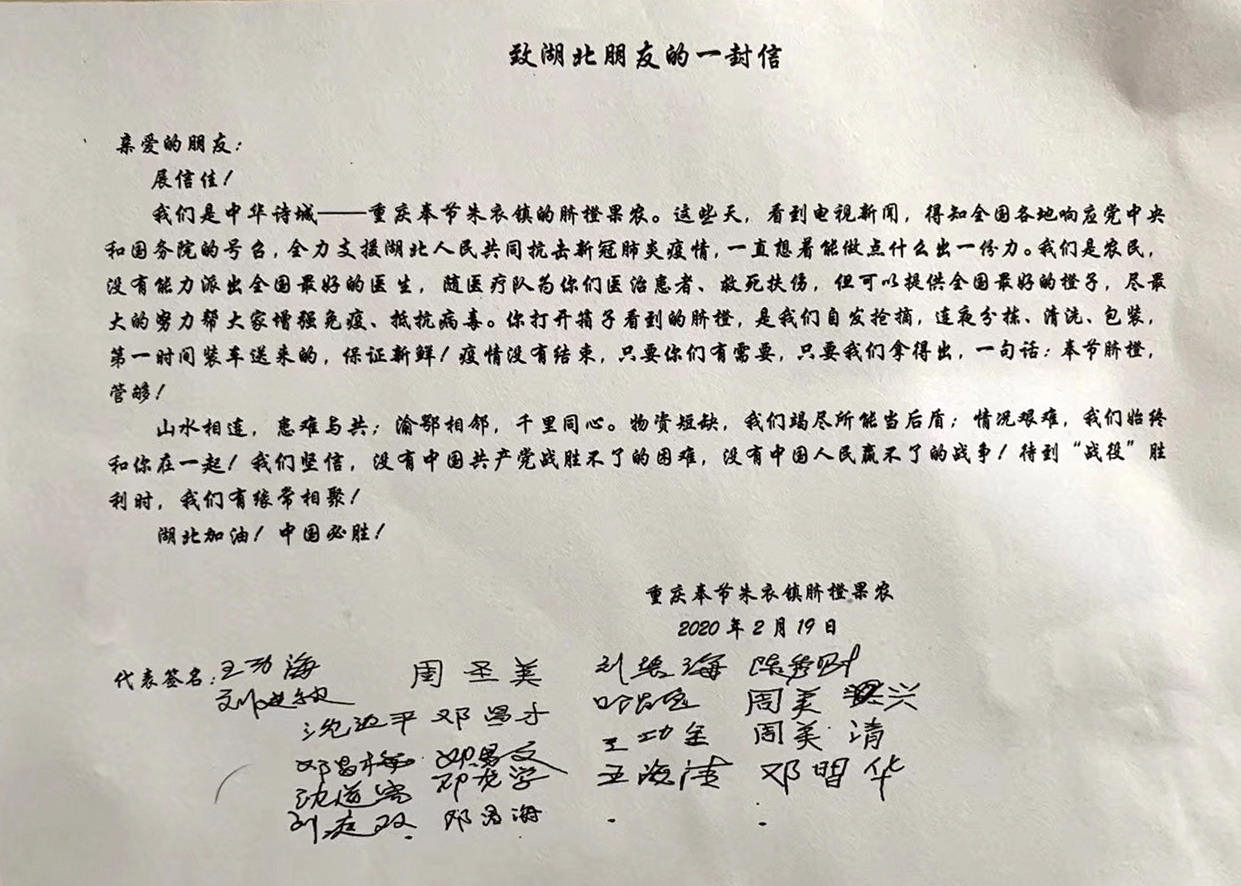 致湖北朋友的一封信
亲爱的朋友：
展信佳！
我们是中华诗城——重庆奉节朱衣镇的脐橙果农。这些天，看到电视新闻，得知全国各地响应党中央
和国务院的号召，全力支援湖北人民共同抗击新冠肺炎疫情，一直想着能做点什么出一份力。我们是农民，
没有能力派出全国最好的医生，随医疗队为你们医治患者、救死扶伤，但可以提供全国最好的橙子，尽最
大的努力帮大家增强免疫、抵抗病毒。你打开箱子看到的脐橙，是我们自发抢摘，连夜分拣、清洗、包装，
第一时间装车送来的，保证新鲜！疫情没有结束，只要你们有需要，只要我们拿得出，一句话：奉节脐橙，
管够！
山水相连，患难与共；渝鄂相邻，千里同心。物资短缺，我们竭尽所能当后盾；情况艰难，我们始终
和你在一起！我们坚信，没有中国共产党战胜不了的困难，没有中国人民赢不了的战争！待到“战役”胜
利时，我们有缘常相聚！
湖北加油！中国必胜！
重庆奉节朱衣镇脐橙果农
2020年2月19日
代表签名：王功海 周圣美
周美兴
邓昌才
周美清
王海清 邓明华
邓昌海